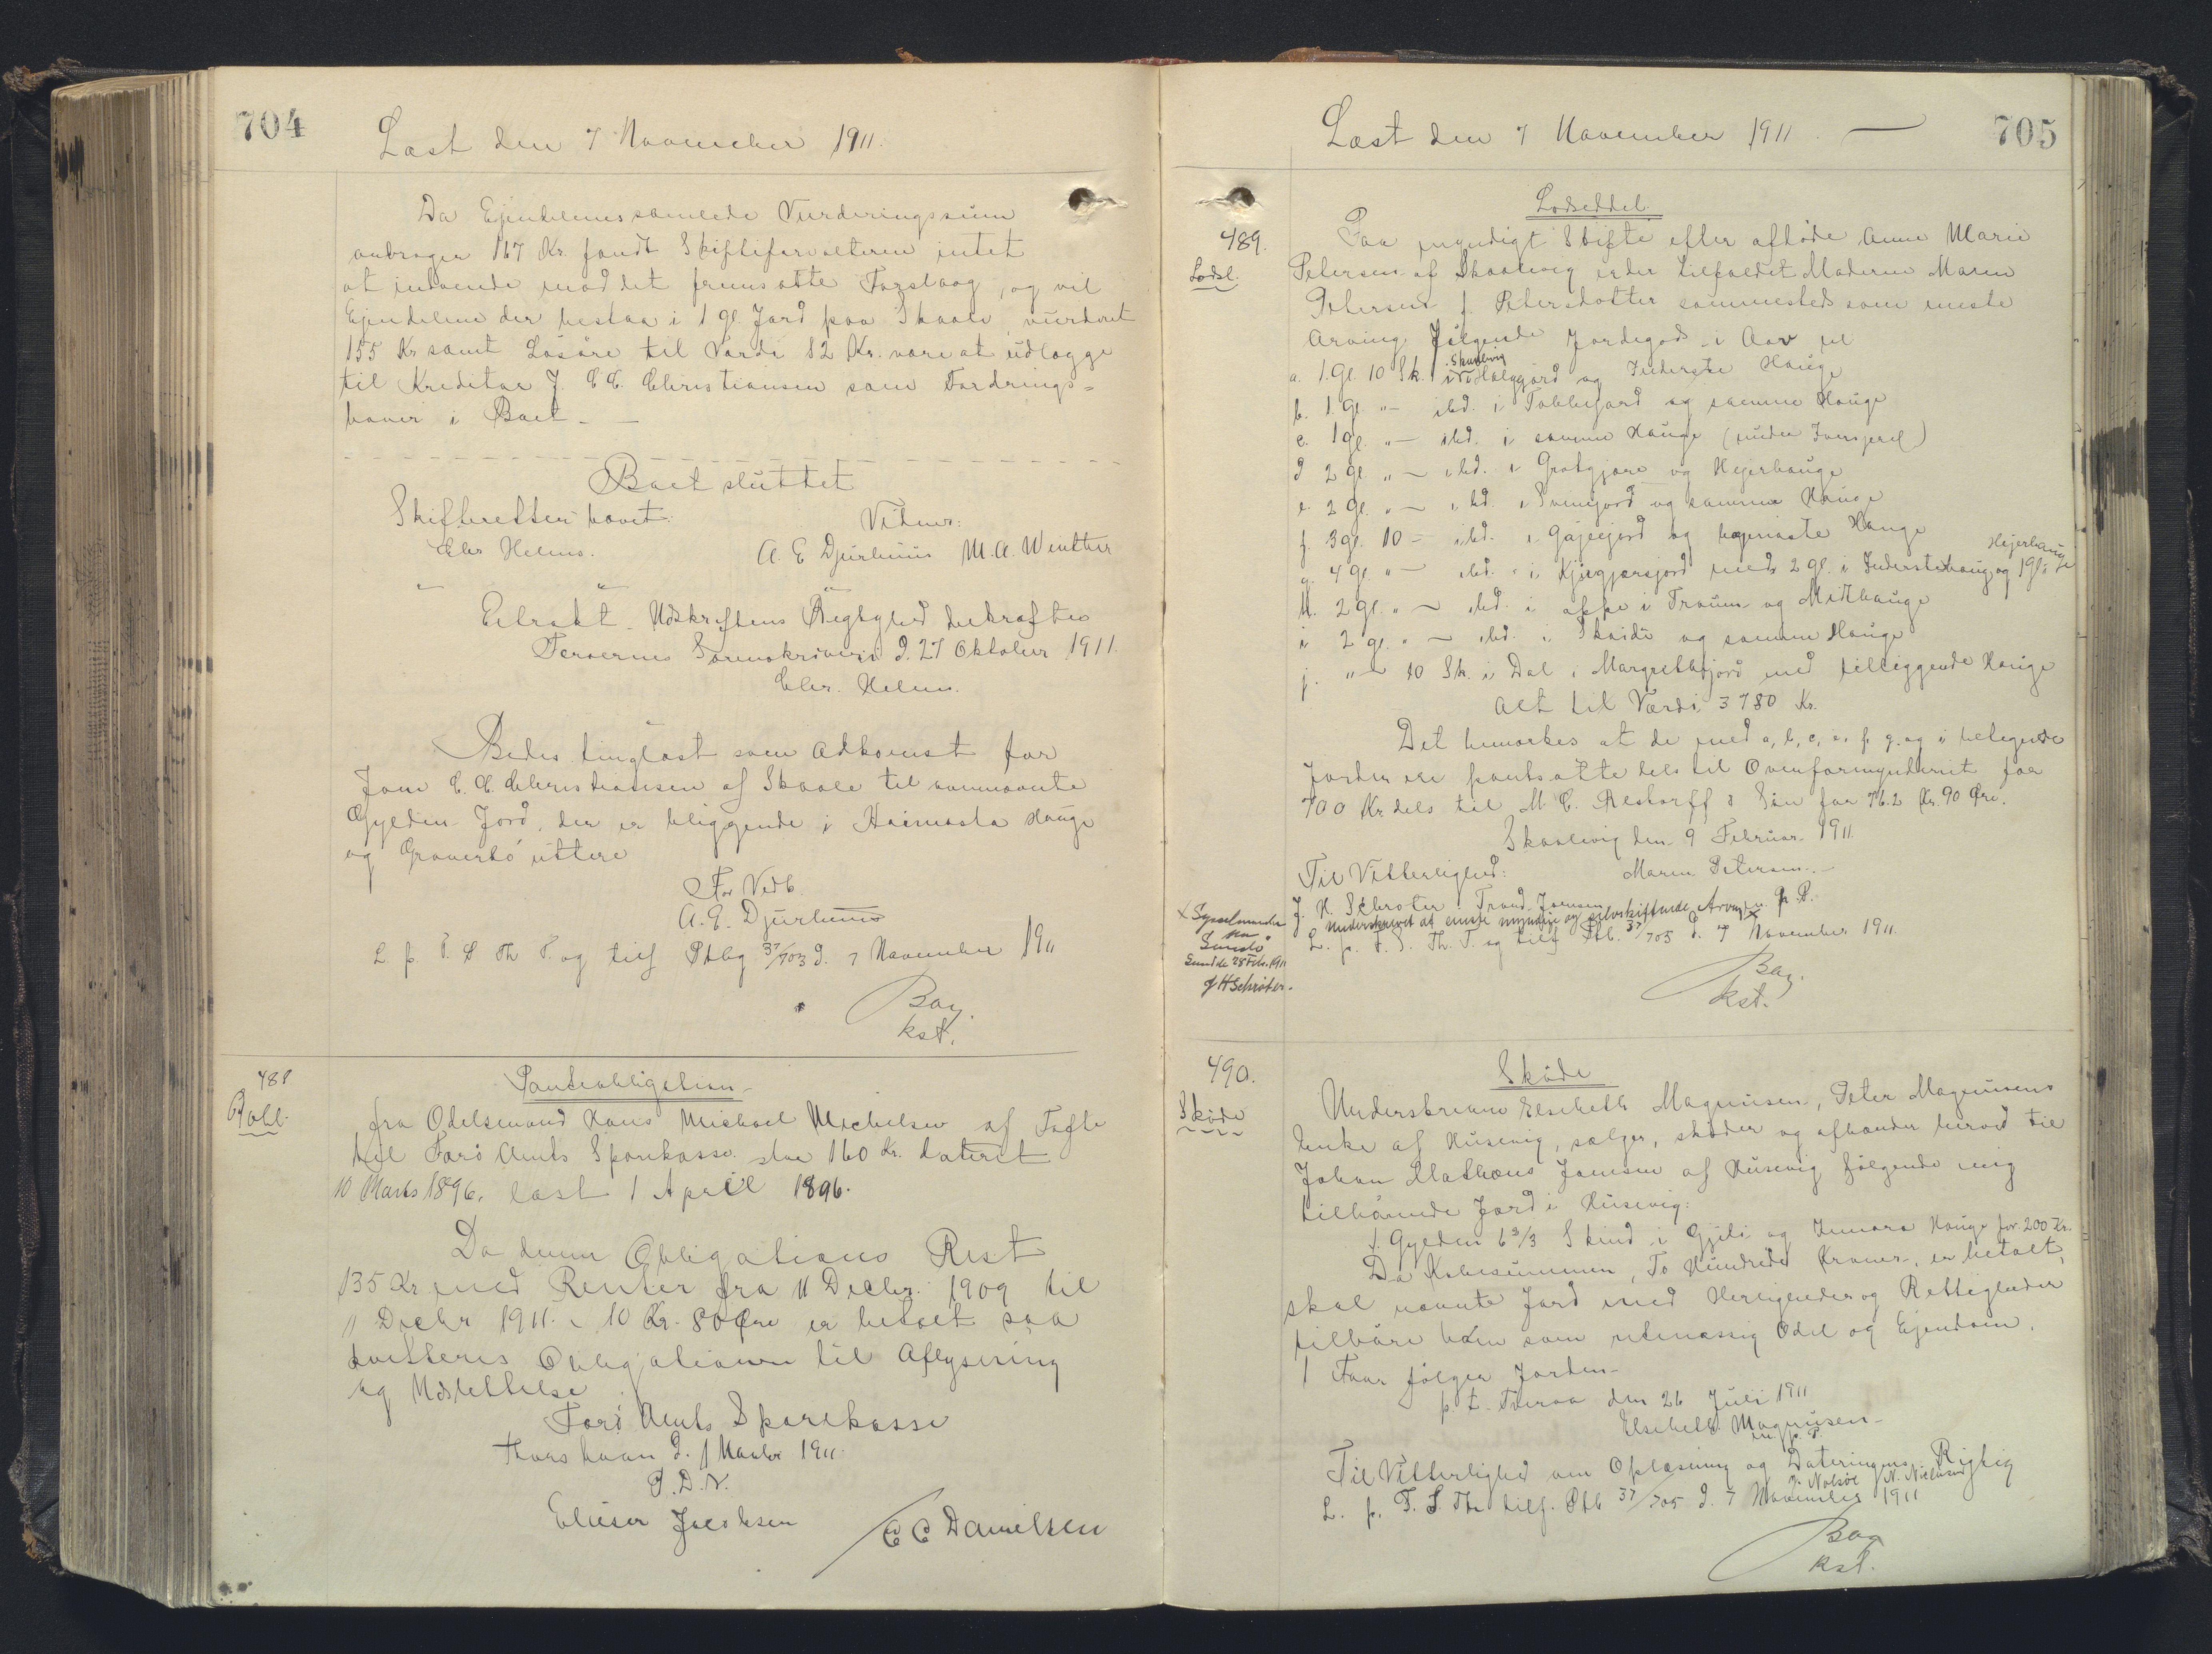 704
Læst den 7 November 1911.
Da Ejendelenes samlede Vurderingssum
andrager 167 Kr. fandt Skifteforvalteren intet
at indvende mod det fremsatte Forslaag, og vil
Ejendelene der bestaa i 1 gl. Jord paa Skaale, vurderet
155 Kr samt Løsøre til Værdi 12 Kr. være at udlægge
til Kreditor J. C. C. Christiansen som Fordrings=
haver i Boet. —
Boet sluttet
Skifteretten hævet.
Vidner:
Chr Helms.
A. E Djurhuus M. A. Winther
Extrakt-Udskriftens Rigtighed bekræftes
Færøernes Sorenskriveri d. 27 Oktober 1911.
Chr. Helms.
Bedes tinglæst som Adkomst for
Joen C. C. Christiansen af Skaale til omnævnte
Gylden Jord, der er beliggende i Heimasta Hauge
og uttere
For Vedk.
A. E. Djurhuus
L. p. F. S Th T. og tilf Ptbg 37/703 d. 7 November 1911
Bay.
kst.
488
Pobl.
Panteobligation
fra Odelsmand Hans Michael Michelsen af Tofte
til Færø Amts Sparekasse stor 160 Kr. dateret
10 Marts 1896, læst 1 April 1896.
Da denne Obligations Rest
135 Kr med Renter fra 11 Decbr. 1909 til
11 Decbr 1911. 10 Kr. 80 Øre er betalt saa
kvitteres Obligationen til Aflysning
og Udslettelse
Færø Amts Sparekasse
Thorshavn d. 1 Novbr 1911.
P. D. V.
Elieser Jacobsen
C C Danielsen
Læst den 7 November 1911 —
705
Lodseddel.
489.
Lodsl.
Paa myndigt Skifte efter afdøde Anne Marie
Petersen af Skaalevig er der tilfaldet Moderen Maren
Petersen f. Petersdatter sammesteds som eneste
Arving følgende Jordegods i Arv
a. 1. gl. 10 Sk. i Skaalevig i og Inderste Hauge
b. 1 gl. " — ibd. i Tobbejord og samme Hauge
c. 1 gl. " — ibd. i samme Hauge (under )
d 2 gl. " — ibd. i og Hejerhauge
e. 2 gl. " — ibd. i og samme Hauge
f. 3 gl. 10 — ibd. i og Hauge
g. 4 gl. " — ibd. i med 2 gl. i Inderstehauge og 1 gl. i Hejerhauge
h. 2 gl. " — ibd. i oppe i Traum og Midthauge
i 2 gl. " — ibd. i Skaide og samme Hauge
j. " — 10 Sk. i Dal i Margrethejord med tilliggende Hauge
Alt til Værdi 3780 Kr.
Det bemærkes at de med a, b, c, e, f. g. og i betegnede
Jorder ere pantsatte dels til Overformynderiet for
700 Kr dels til M C. Restorff & Søn for 762 Kr. 90 Øre.
Skaalevig den 9 Februar 1911
Til Vitterlighed:
Maren Petersen
J. H. Schrøter Trond Joensen m. f. P.
Underskrevet af eneste myndige og selvskiftende Arving x
L. p. F. S. Th. T. og tilf Ptb. 37/705 d. 7 November 1911
x Sysselmanden
paa
Sandø
Sand de 28 Febr. 1911
J H Schrøter.
Bay.
kst.
490.
Skøde
Skøde
Underskrevne Elsebeth Magnusen, Peter Magnusens
Enke af Husevig, sælger, skøder og afhænder herved til
Johan Mathæus Joensen af Husevig følgende mig
tilhørende Jord i Husevig:
1 Gylden 6 2/3 Skind i Gjili og Innara Hauge for 200 Kr.
Da Købesummen, To Hundrede Kroner, er betalt,
skal nævnte Jord med Herligheder og Rettigheder
tilhøre ham som retmæssig Odel og Ejendom.
1 Faar følger Jorden—
p. t. Tveraa den 26 Juli 1911
Elsebeth Magnusen—
m. f. P.
Til Vitterlighed om Oplæsning og Dateringens Rigtig
J. Nolsøe N. Nielsen
L. p. F. S Th tilf. Ptb 37/705 d. 7 November 1911
Bay
kst.